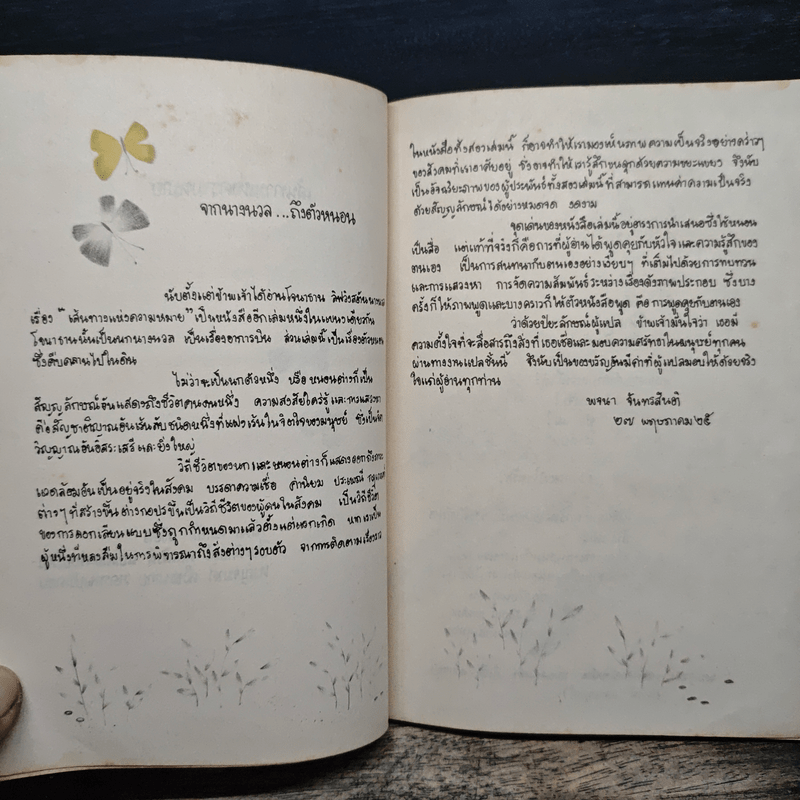 จากนางนวล...ถึงตัวหนอน
นับตั้งแต่ข้าพเจ้าได้อ่านโจนาธาน ลิฟวิงสตันนางนวล
เรื่อง "เส้นทางแห่งความหมาย" เป็นหนังสืออีกเล่มหนึ่งในแนวเดียวกัน
โจนาธานนั้นเป็นนกนางนวล เป็นเรื่องอาการบิน ส่วนเล่มนี้เป็นเรื่องตัวหนอน
ซึ่งคืบคลานไปในดิน
ไม่ว่าจะเป็นนกตัวหนึ่ง หรือหนอนต่างก็เป็น
สัญญลักษณ์อันแสดงถึงชีวิตคนคนหนึ่ง ความสงสัยใคร่รู้และการแสวงหา
ต่อสัญชาติญาณอันเร้นลับชนิดหนึ่งที่แฝงเร้นในจิตใจของมนุษย์ ซึ่งเป็นจิต
วิญญาณอันอิสระเสรีและยิ่งใหญ่
วิถีชีวิตของนกและหนอนต่างก็แสดงออกถึงสภาพ
แวดล้อมอันเป็นอยู่จริงในสังคม บรรดาความเชื่อ ค่านิยม ประเพณี
ต่างๆที่สร้างขึ้นต่างกอปรขึ้นเป็นวิถีชีวิตของผู้คนในสังคม เป็นวิถีชีวิต
ของการลอกเลียนแบบซึ่งถูกกำหนดมาแล้วตั้งแต่แรกเกิด หากเราเป็น
ผู้หนึ่งที่หลงลืมในการพิจารณาถึงสิ่งต่างๆรอบตัว จากการติดตามเรื่องราว
ในหนังสือทั้งสองเล่มนี้ ก็อาจทำให้เรามองเห็นภาพความเป็นจริงอย่างคร่าวๆ
ของสังคมที่เราอาศัยอยู่ ซึ่งอาจทำให้เรารู้สึกขนลุกด้วยความขยะแขยง จึงนับ
เป็นอัจฉริยะภาพของผู้ประพันธ์ทั้งสองเล่มนี้ที่สามารถแทนค่าความเป็นจริง
ด้วยสัญญลักษณ์ได้อย่างหมดจด งดงาม
จุดเด่นของหนังสือเล่มนี้อยู่ตรงการนำเสนอซึ่งใช้หนอน
เป็นสื่อ แต่แท้ที่จริงก็คือการที่ผู้อ่านได้พูดคุยกับหัวใจและความรู้สึกของ
ตนเอง เป็นการสนทนากับตนเองอย่างเงียบๆ ที่เต็มไปด้วยการทบทวน
และการแสวงหา การจัดความสัมพันธ์ระหว่างเรื่องดังภาพประกอบ ซึ่งบาง
ครั้งก็ให้ภาพพูดและบางคราวก็ให้ตัวหนังสือพูด คือการพูดคุยกับตนเอง
ว่าด้วยปิยะลักษณ์ผู้แปล ข้าพเจ้ามั่นใจว่า เธอมี
ความตั้งใจที่จะสื่อสารถึงสิ่งที่เธอเชื่อและมอบความศรัทธาในมนุษย์ทุกคน
ผ่านทางงานแปลชิ้นนี้ จึงนับเป็นของขวัญอันมีค่าที่ผู้แปลมอบให้ด้วยจริง
ใจแก่ผู้อ่านทุกท่าน
พจนา จันทรสันติ
๒๗ พฤษภาคม ๒๕